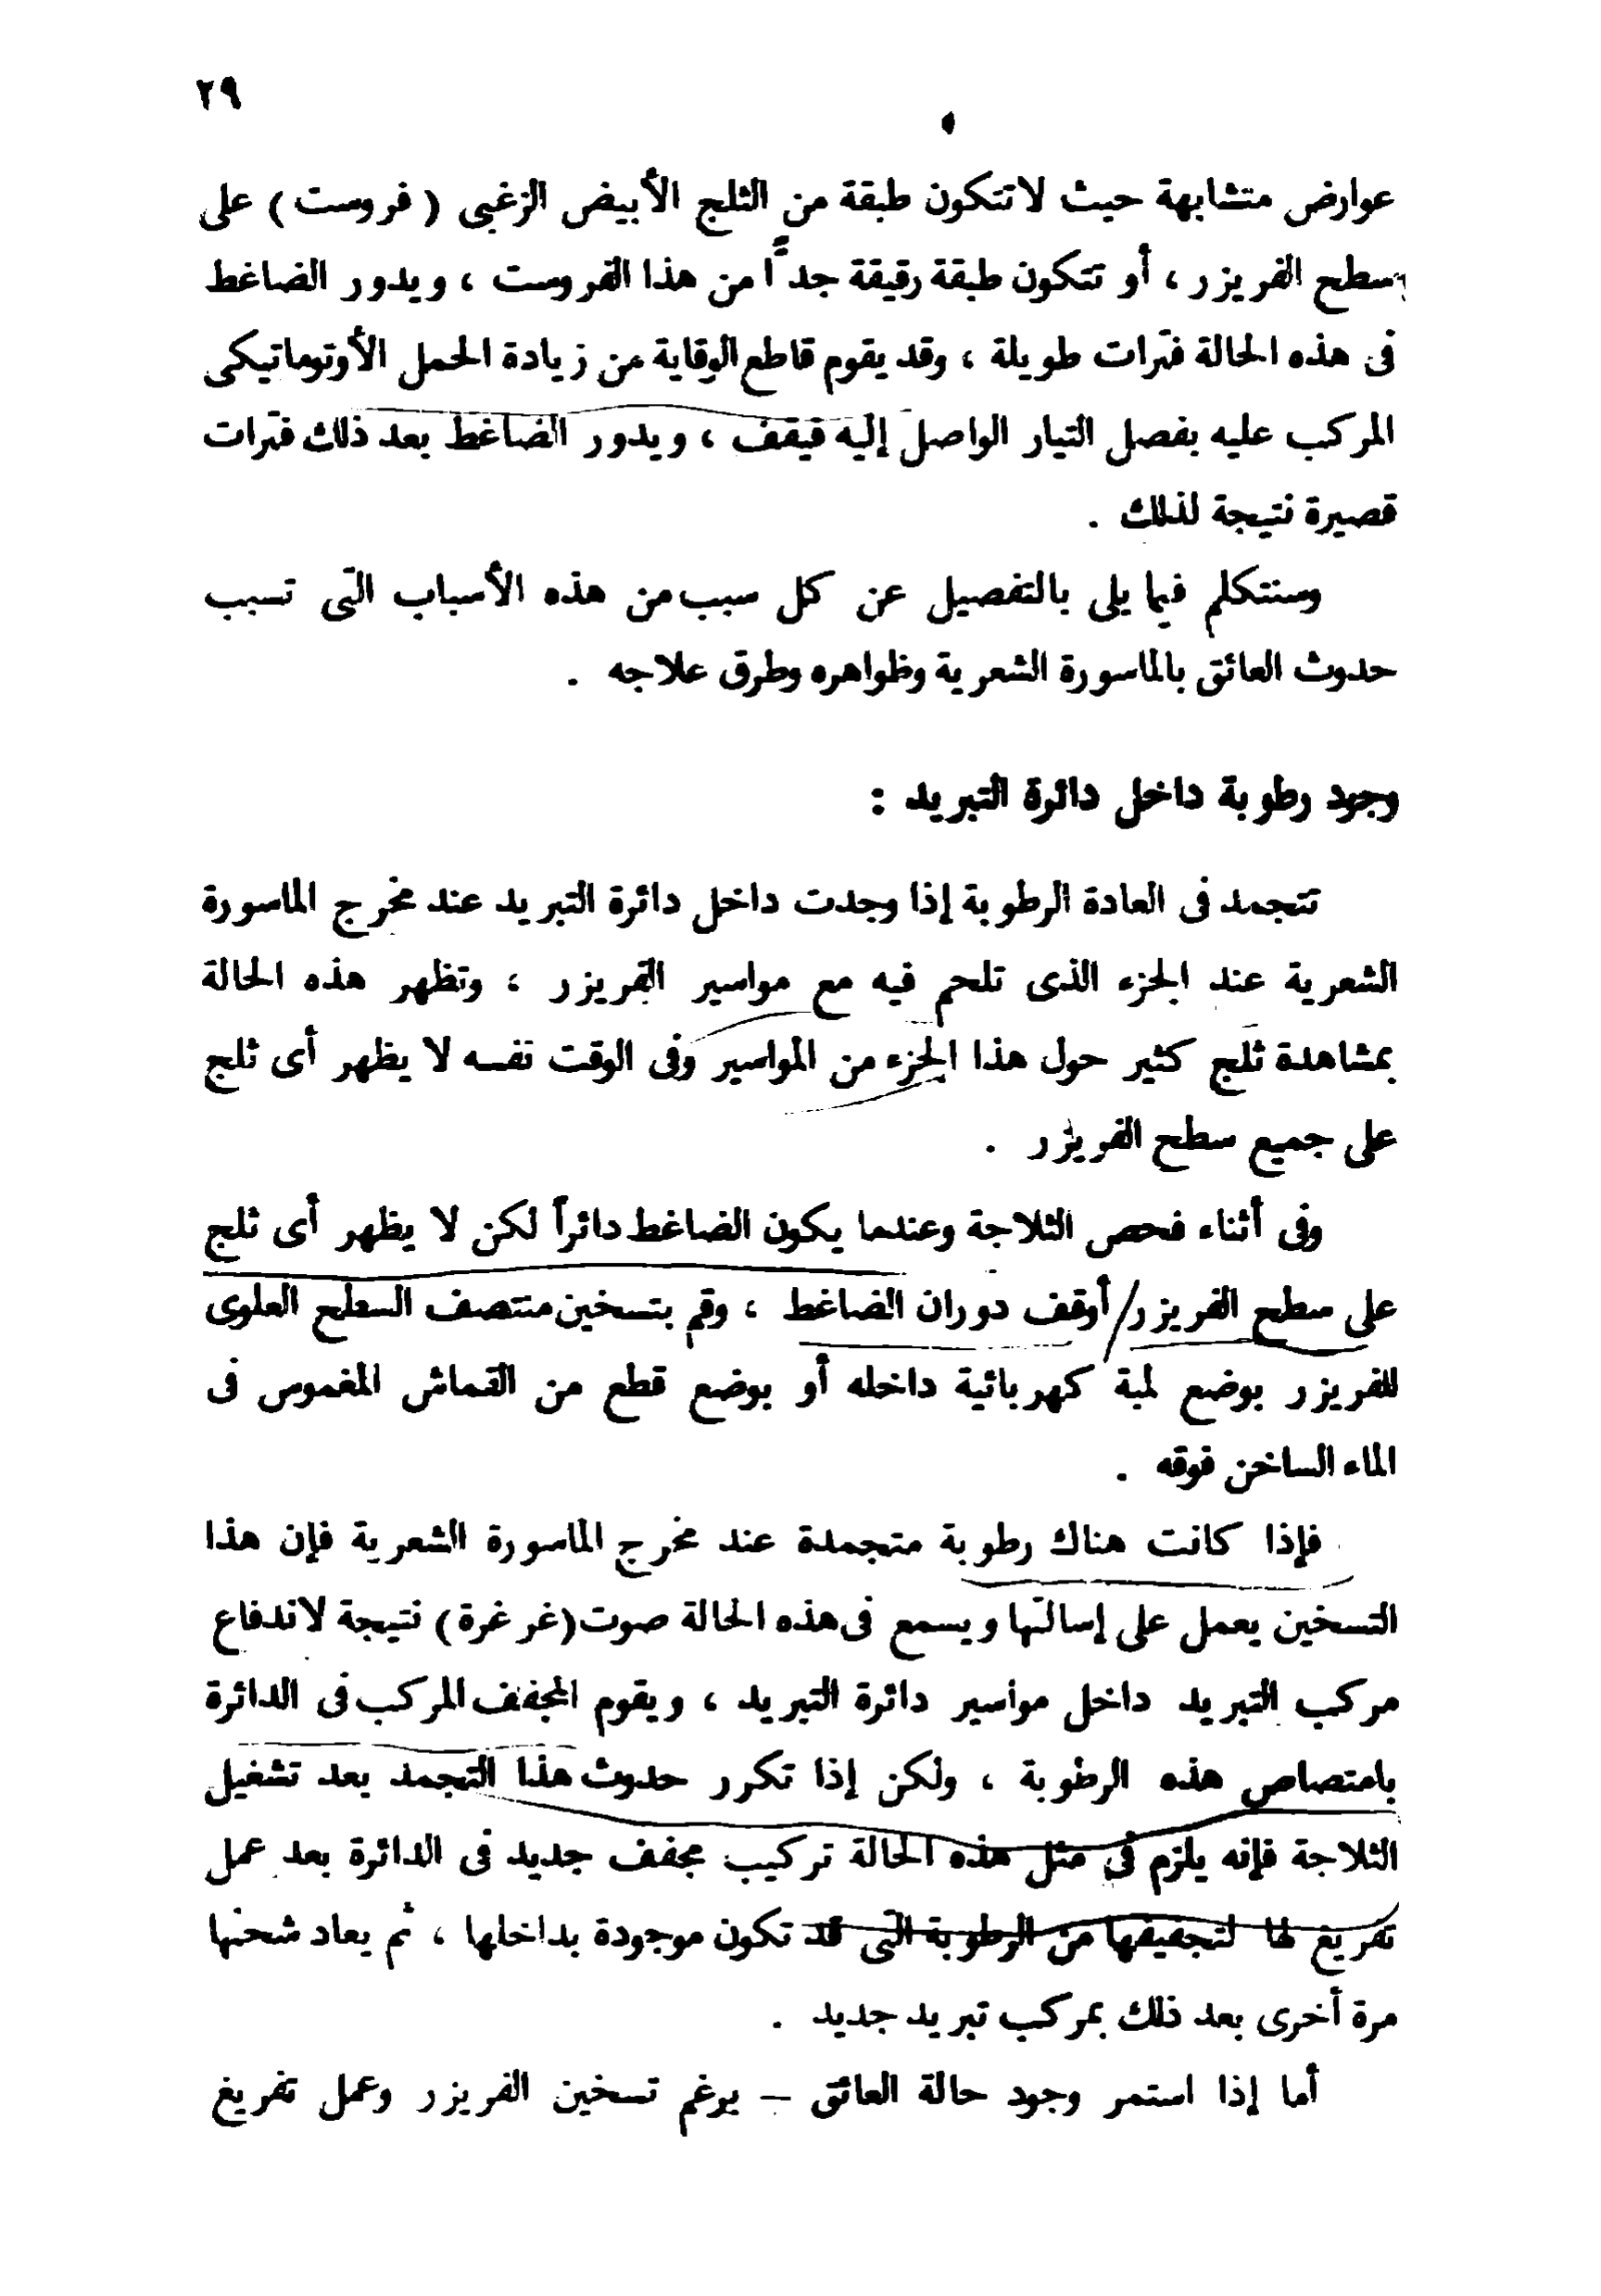 ٢٩
عوارض متشابهة حيث لا تتكون طبقة من الثلج الأبيض الزغبى ( فروست ) على
سطح الفريزر ، أو تتكون طبقة رقيقة جدًّا من هذا الفروست ، ويدور الضاغط
فى هذه الحالة فترات طويلة ، وقد يقوم قاطع الوقاية من زيادة الحمل الأوتوماتيكى
المركب عليه بفصل التيار الواصل إليه فيقف ، ويدور الضاغط بعد ذلك فترات
قصيرة نتيجة لذلك .
وسنتكلم فيما يلى بالتفصيل عن كل سبب من هذه الأسباب التى تسبب
حدوث العائق بالماسورة الشعرية وظواهره وطرق علاجه .
وجود رطوبة داخل دائرة التبريد :
تتجمد فى العادة الرطوبة إذا وجدت داخل دائرة التبريد عند مخرج الماسورة
الشعرية عند الجزء الذى تلحم فيه مع مواسير الفريزر ، وتظهر هذه الحالة
بمشاهدة ثلج كثير حول هذا الجزء من المواسير وفى الوقت نفسه لا يظهر أى ثلج
على جميع سطح الفريزر .
وفى أثناء فحص الثلاجة وعندما يكون الضاغط دائراً لكن لا يظهر أى ثلج
على سطح الفريزر أوقف دوران الضاغط ، وقم بتسخين منتصف السطح العلوى
للفريزر بوضع لمبة كهربائية داخله أو بوضع قطع من القماش المغموس فى
الماء الساخن فوقه .
فإذا كانت هناك رطوبة متجمدة عند مخرج الماسورة الشعرية فإن هذا
التسخين يعمل على إسالتها ويسمع فى هذه الحالة صوت (غرغرة) نتيجة لاندفاع
مركب التبريد داخل مواسير دائرة التبريد ، ويقوم المجفف المركب فى الدائرة
بامتصاص هذه الرطوبة ، ولكن إذا تكرر حدوث هذا التجمد بعد تشغيل
الثلاجة فإنه يلزم فى مثل هذه الحالة تركيب مجفف جديد فى الدائرة بعد عمل
تفريغ لها لتجفيفها من الرطوبة التى قد تكون موجودة بداخلها ، ثم يعاد شحنها
مرة أخرى بعد ذلك بمركب تبريد جديد .
أما إذا استمر وجود حالة العائق – برغم تسخين الفريزر وعمل تفريغ